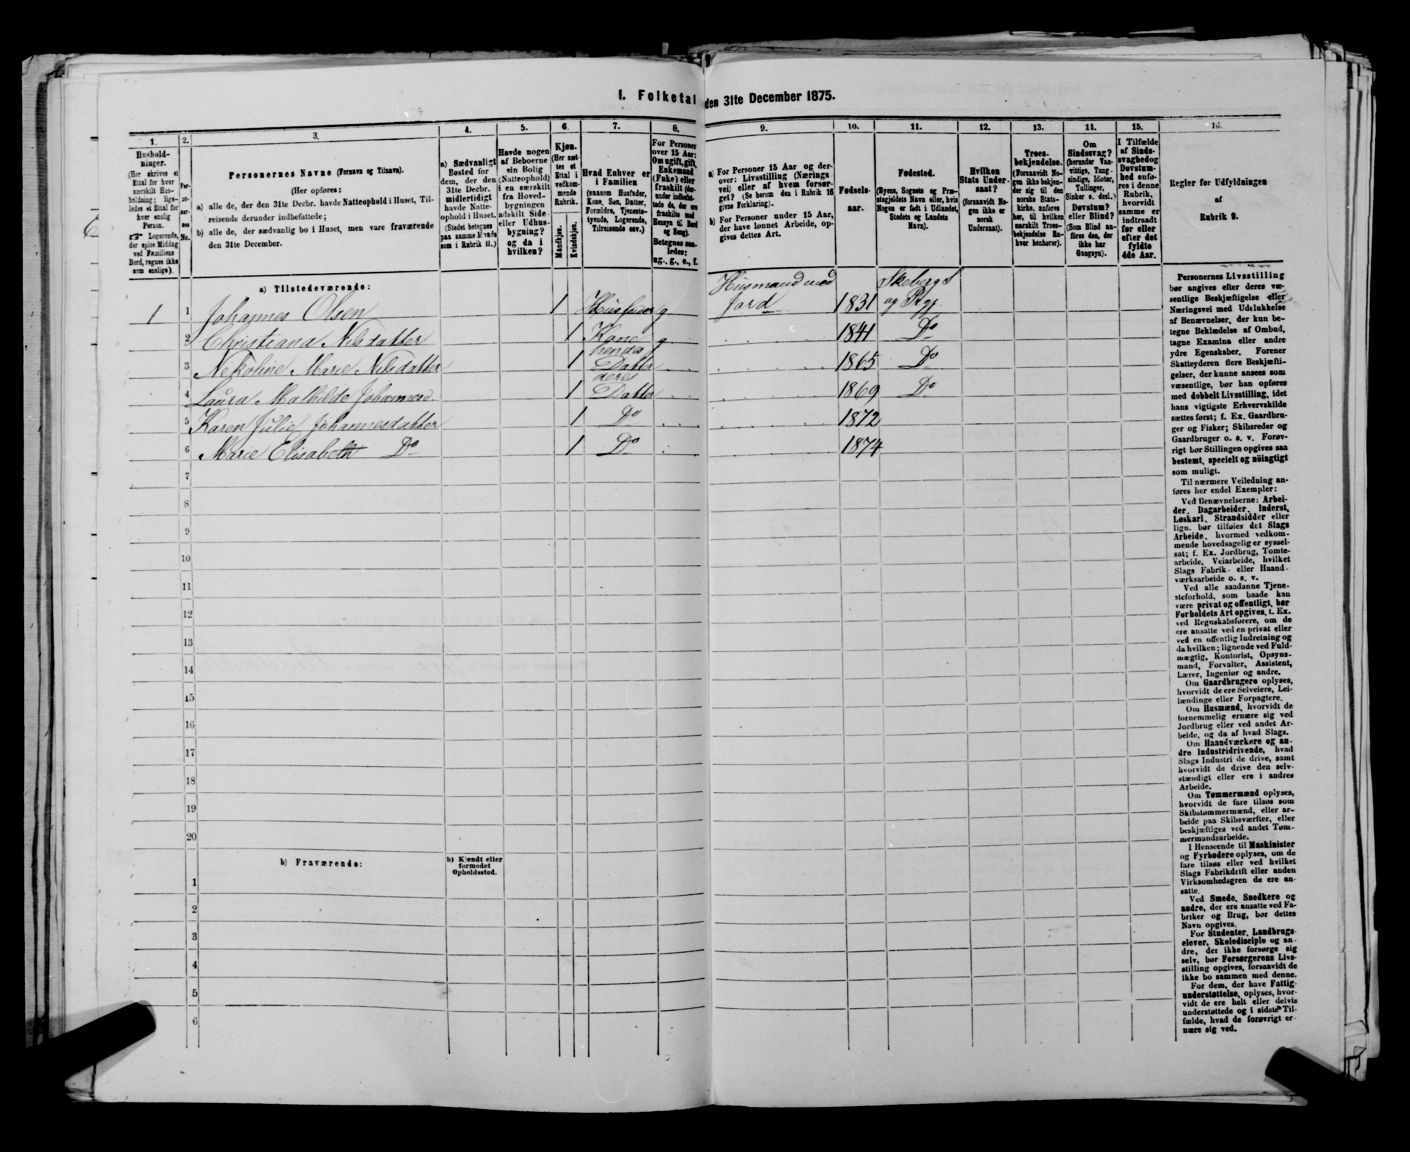 I. Folketal den 31te December 1875.
1.
2.
3.
4.
5.
6.
7.
8.
9.
10.
11.
12.
13.
14.
15.
16.
Hushold-
ninger.
(Her skrives et
Ettal for hver
særskilt Hus-
holdning; lige-
ledes et Ettal for
hver enslig
Person.
☞ Logerende,
der spise Middag
ved Familiens
Bord, regnes ikke
som enslige).
Per-
so-
ner-
nes
No.
Personernes Navne (Fornavn og Tilnavn).
(Her opføres:
a) alle de, der den 31te Decbr. havde Natteophold i Huset, Til-
reisende derunder indbefattede;
b) alle de, der sædvanlig bo i Huset, men vare fraværende
den 31te December.
a) Sædvanligt
Bosted for
dem, der den
31te Decbr.
midlertidigt
havde Natte-
ophold i Huset.
(Stedet betegnes
paa samme Maade
som i Rubrik 11.)
Havde nogen
af Beboerne
sin Bolig
(Natteophold)
i en særskilt
fra Hoved-
bygningen
adskilt Side-
eller Udhus-
bygning?
og da i
hvilken?
Kjøn.
(Her sæt-
tes et
Ettal i
vedkom-
mende
Rubrik.
Mandkjøn.
Kvindekjøn.
Hvad Enhver er
i Familien
(saasom Husfader,
Kone, Søn, Datter,
Forældre, Tjeneste-
tyende, Logerende,
Tilreisende osv.)
For Personer
over 15 Aar:
Om ugift, gift,
Enkemand
(Enke) eller
fraskilt (der-
under indbefat-
tede de, der ere
fraskilte med
Hensyn til Bord
og Seng).
Betegnes saa-
ledes:
ug., g., e., f.
a) For Personer 15 Aar og der-
over: Livsstilling (Nærings-
vei) eller af hvem forsør-
get? (Se herom den i Rubrik 16
givne Forklaring).
b) For Personer under 15 Aar,
der have lønnet Arbeide, op-
gives dettes Art.
Fødsels-
aar.
Fødested.
(Byens, Sognets og Præ-
stegjeldets Navn eller, hvis
Nogen er født i Udlandet,
Stedets og Landets
Navn).
Hvilken
Stats Under-
saat?
(forsaavidt No-
gen ikke er
norsk
Undersaat).
Troes-
bekjendelse.
(Forsaavidt No-
gen ikke bekjen-
der sig til den
norske Stats-
kirke, anføres
her, til hvilken
særskilt Troes-
bekjendelse En-
hver henhører).
Om
Sindssvag?
(herunder Van-
vittige, Tung-
sindige, Idioter,
Tullinger,
Sinker o. desl.)
Døvstum?
eller Blind?
(Som Blind an-
føres den, der
ikke har
Gangsyn).
I Tilfælde
af Sinds-
svaghed og
Døvstum-
hed anfø-
res i denne
Rubrik,
hvorvidt
samme er
indtraadt
før eller
efter det
fyldte
4de Aar.
Regler for Udfyldningen
af
Rubrik 9.
a) Tilstedeværende:
Husmand med
1 1 Johannes Olsen 1 Husfader g jord 1831 Skeberg S og Pgj.
2 Christiana Nilsdatter 1 Kone g 1841 Do
3 Nekoline Marie Nilsdatter 1 hendes Datter 1865 Do
4 Laura Mathilde Johannesd. 1 deres Datter 1869 Do
5 Karen Julie Johannesdatter 1 Do 1872
6 Marie Elisabeth Do 1 Do 1874
7
8
9
10
11
12
13
14
15
16
17
18
19
20
b) Fraværende:
b) Kjendt eller
formodet
Opholdssted.
1
2
3
4
5
6
Personernes Livsstilling
bør angives efter deres væ-
sentlige Beskjæftigelse eller
Næringsvei med Udelukkelse
af Benævnelser, der kun be-
tegne Beklædelse af Ombud,
tagne Examina eller andre
ydre Egenskaber. Forener
Skatteyderen flere Beskjæfti-
gelser, der kunne ansees som
væsentlige, bør han opføres
med dobbelt Livsstilling, idet
hans vigtigste Erhvervskilde
sættes først; f. Ex. Gaardbru-
ger og Fisker; Skibsreder og
Gaardbruger o. s. v. Forøv-
rigt bør Stillingen opgives saa
bestemt, specielt og nøiagtigt
som muligt.
Til nærmere Veiledning an-
føres her endel Exempler:
Ved Benævnelserne: Arbei-
der, Dagarbeider, Inderst,
Løskarl, Strandsidder eller
lign. bør tilføies det Slags
Arbeide, hvormed vedkom-
mende hovedsagelig er syssel-
sat; f. Ex. Jordbrug, Tomte-
arbeide, Veiarbeide, hvilket
Slags Fabrik- eller Haand-
værksarbeide o. s. v.
Ved alle saadanne Tjene-
steforhold, som baade kan
være privat og offentligt, bør
Forholdets Art opgives, t. Ex.
ved Regnskabsførere, om de
ere ansatte ved en privat eller
ved en offentlig Indretning og
da hvilken; lignende ved Fuld-
mægtig, Kontorist, Opsyns-
mand, Forvalter, Assistent,
Lærer, Ingeniør og andre.
Om Gaardbrugere oplyses,
hvorvidt de ere Selveiere, Lei-
lændinge eller Forpagtere.
Om Husmænd, hvorvidt de
fornemmelig ernære sig ved
Jordbrug eller ved andet Ar-
beide, og da af hvad Slags.
Om Haandværkere og an-
dre Industridrivende, hvad
Slags Industri de drive, samt
hvorvidt de drive den selv-
stændigt eller ere i andres
Arbeide.
Om Tømmermænd oplyses,
hvorvidt de fare tilsøs som
Skibstømmermænd, eller ar-
beide paa Skibsværfter, eller
beskjæftiges ved andet Tøm-
mermandsarbeide.
I Henseende til Maskinister
og Fyrbødere oplyses, om de
fare tilsøs eller ved hvilket
Slags Fabrikdrift eller anden
Virksomhedsgren de ere an-
satte.
Ved Smede, Snedkere og
andre, der ere ansatte ved Fa-
briker og Brug, bør dettes
Navn opgives.
For Studenter, Landbrugs-
elever, Skoledisciple og an-
dre, der ikke forsørge sig
selv, bør Forsørgerens Livs-
stilling opgives, forsaavidt de
ikke bo sammen med denne.
For dem, der have Fattig-
understøttelse, oplyses, hvor-
vidt de ere helt eller delvis
understøttede og i sidste Til-
fælde, hvad de forøvrigt er-
nære sig ved.